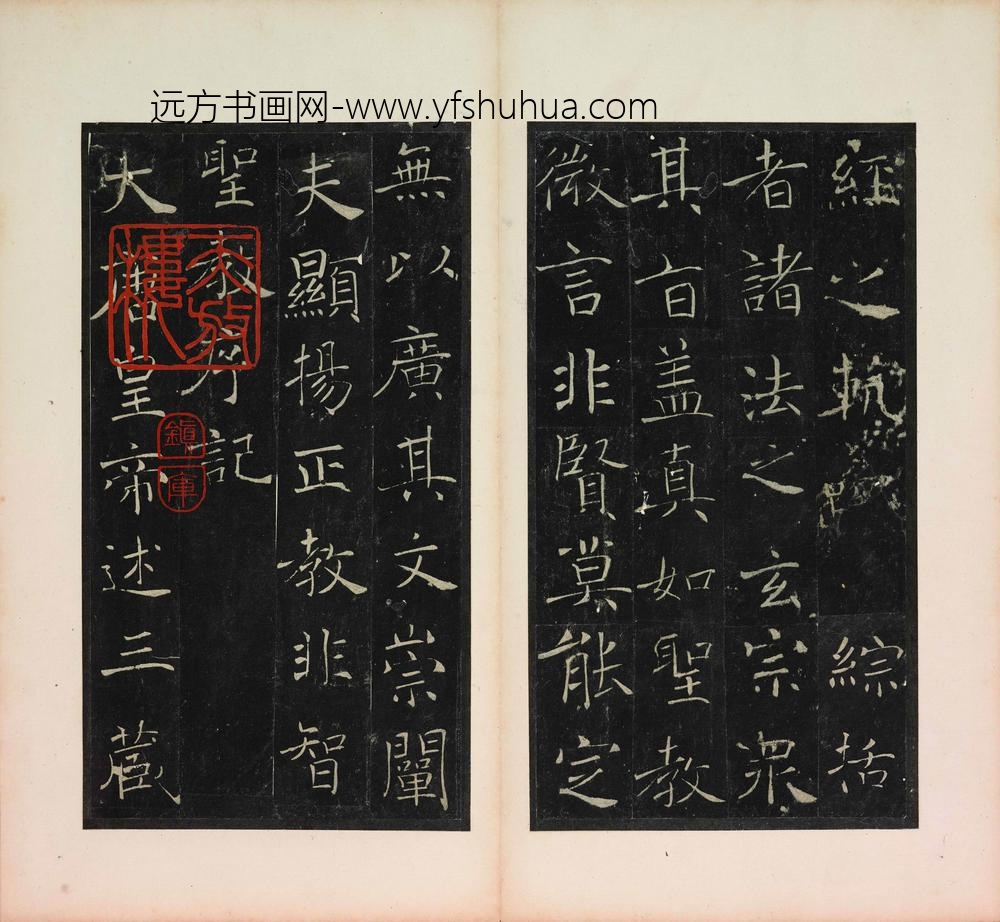 远方书画网-www.yfshuhua.com
大唐皇帝述三藏
聖教序記
夫顯揚正教非智
無以廣其文崇闡
微言非賢莫能定
其旨盖真如聖教
者諸法之玄宗眾
經之軌綜括
鎮庫